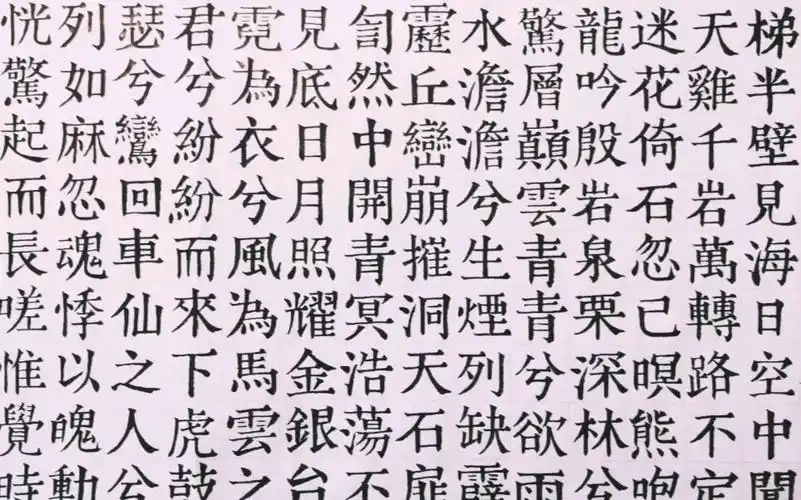 梯半壁見海日空中聞
天雞千岩萬轉路不定
迷花倚石忽己暝熊咆
龍吟殷岩泉栗深林兮
驚層巔雲青青兮欲雨
水澹澹兮生煙列缺霹
靂丘巒崩摧洞天石扉
訇然中開青冥浩蕩不
見底日月照耀金銀台
霓為衣兮風為馬雲之
君兮兮紛紛而來下虎鼓
瑟兮鸞回車仙之人兮
列如麻忽魂悸以魄動
恍驚起而長嗟惟覺時